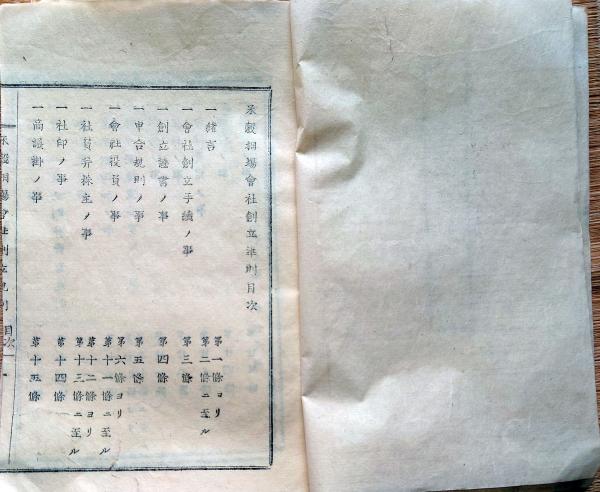 米穀相場會社創立準則目次
一緒言
一會社創立手續ノ事
第一條ヨリ
第二條ニ至ル
一創立證書ノ事
第三條
一申合規則ノ事
第四條
一會社役員ノ事
第五條
一社員并株主ノ事
第六條ヨリ
第十一條ニ至ル
一社印ノ事
第十二條ヨリ
第十三條ニ至ル
一商議掛ノ事
第十四條
第十五條
米穀相場會社創立規則
目次
一